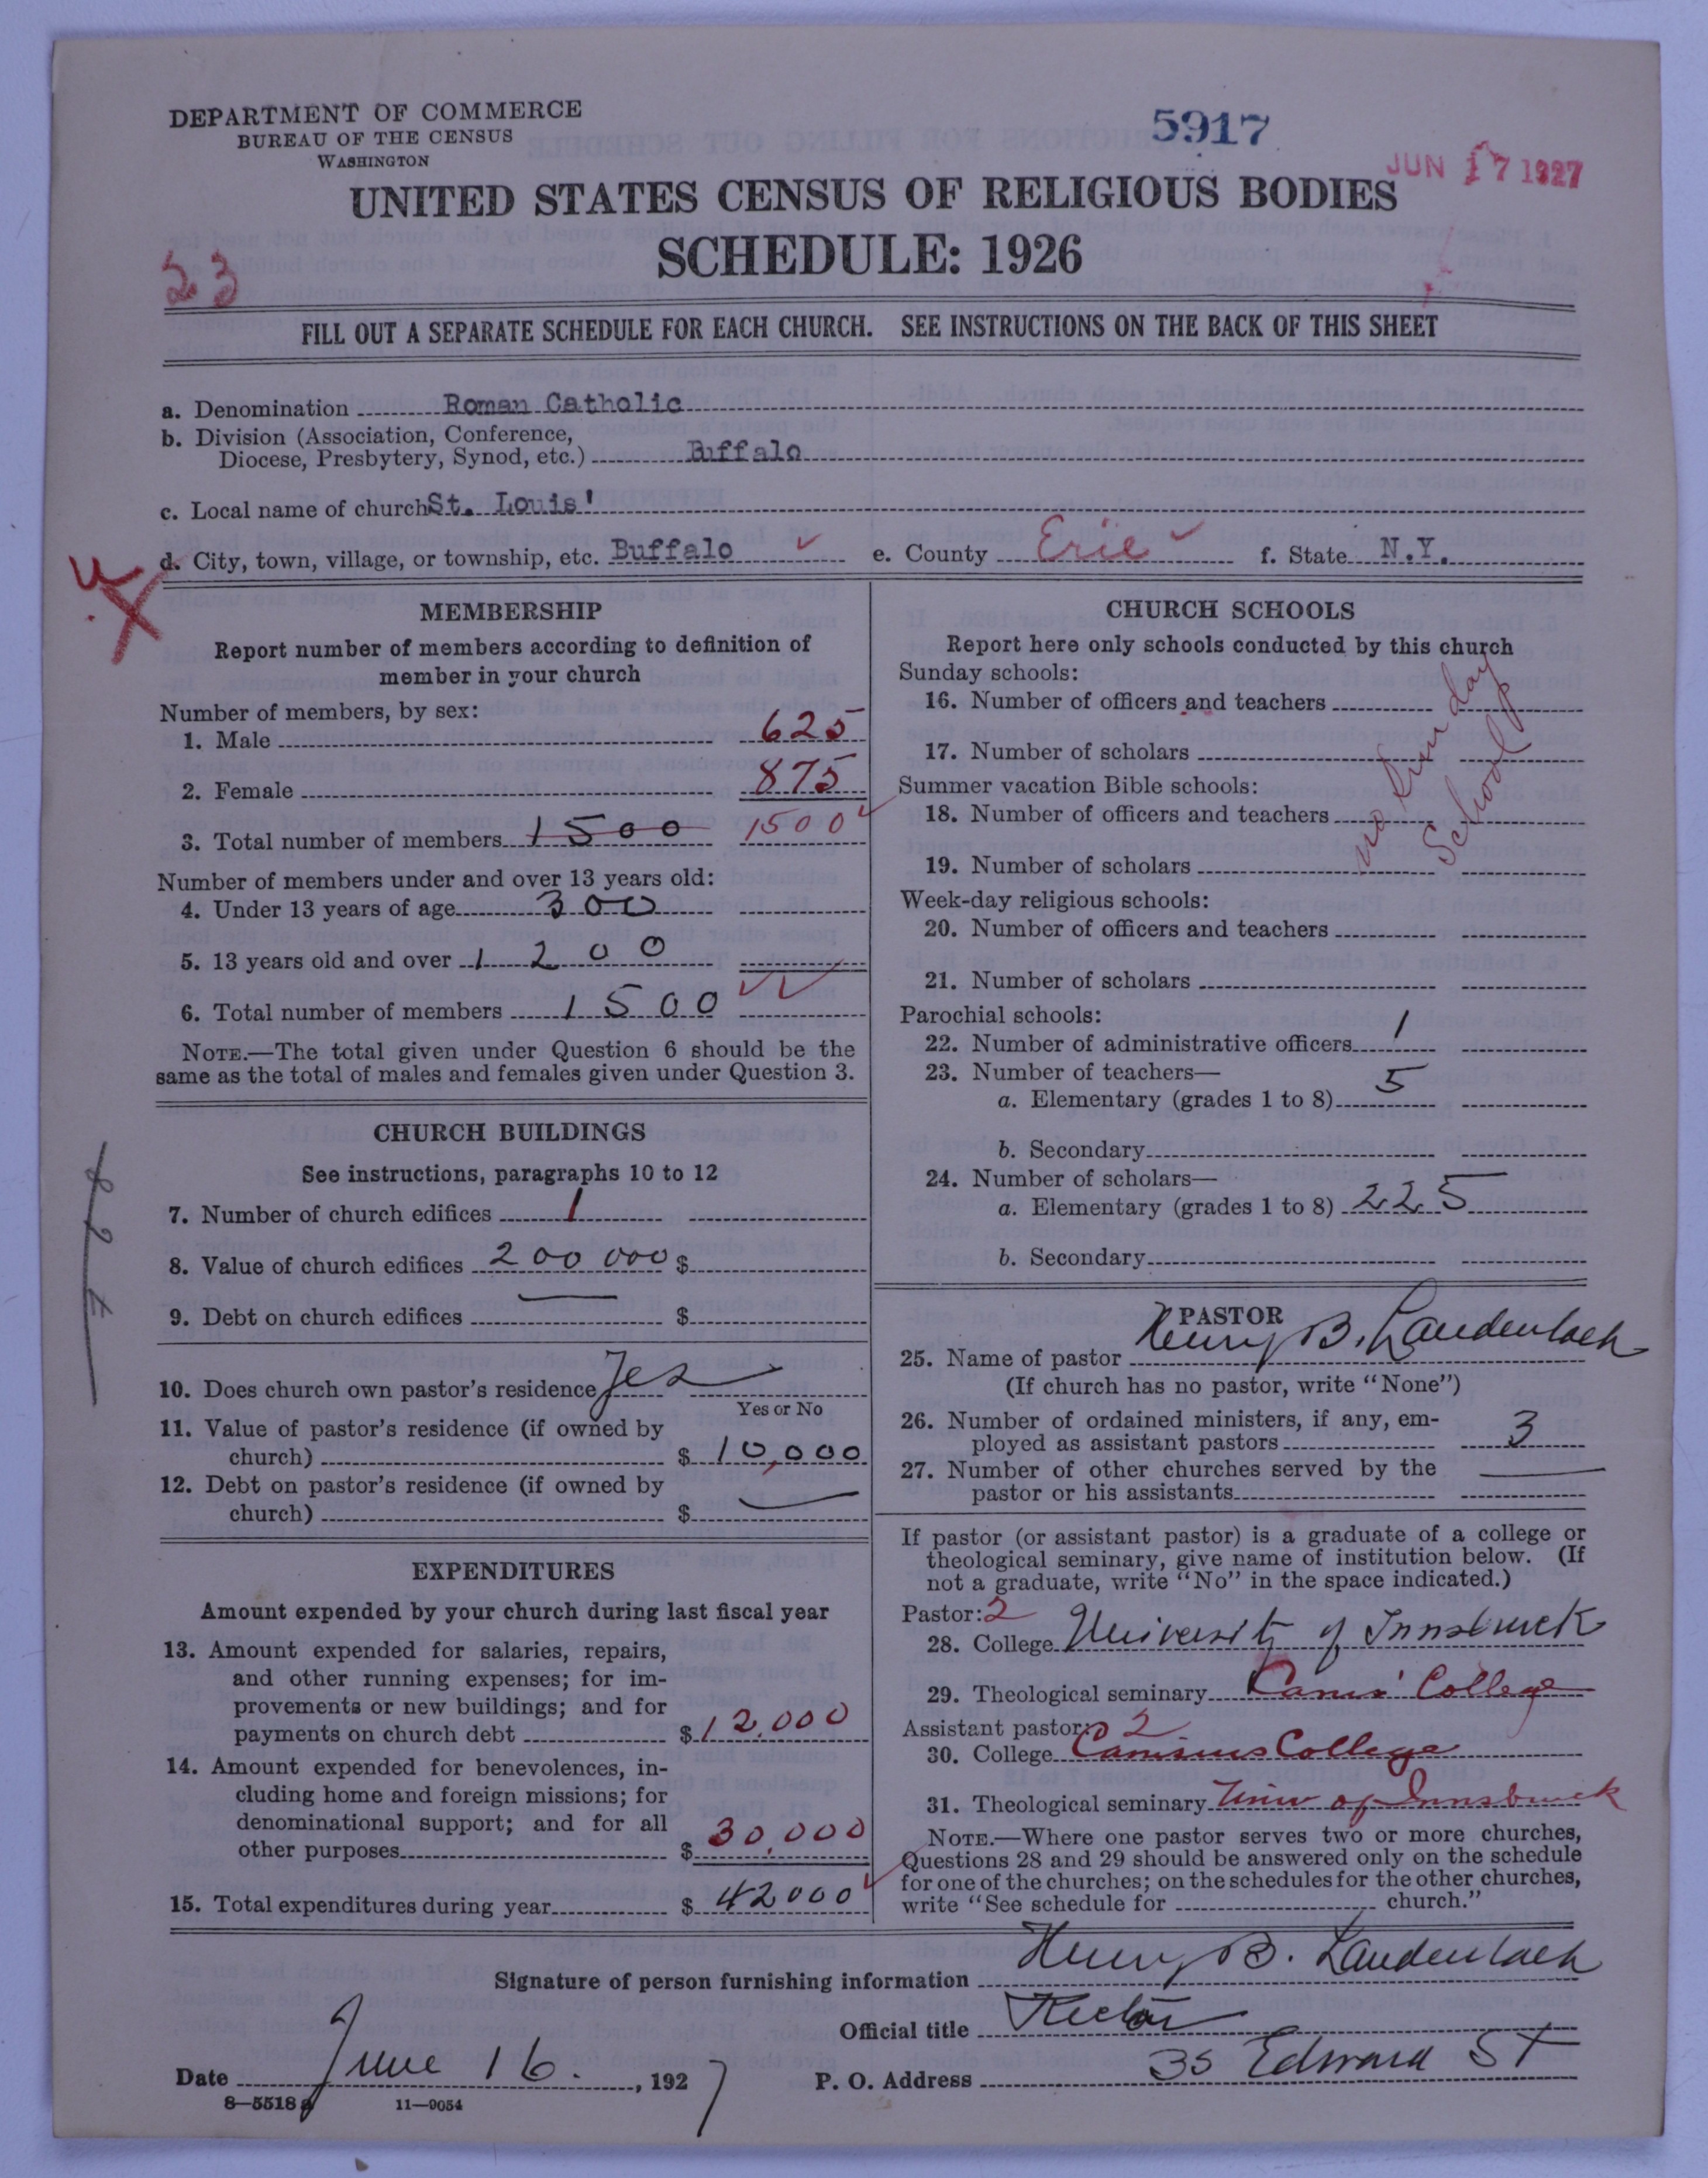 DEPARTMENT OF COMMERCE
BUREAU OF THE CENSUS
WASHINGTON
5917
JUN 17 1927
UNITED STATES CENSUS OF RELIGIOUS BODIES
SCHEDULE: 1926
23
FILL OUT A SEPARATE SCHEDULE FOR EACH CHURCH. SEE INSTRUCTIONS ON THE BACK OF THIS SHEET
a. Denomination Roman Catholic
b. Division (Association, Conference,
Diocese, Presbytery, Synod, etc.) Buffalo
c. Local name of church St. Louis'
d. City, town, village, or township, etc. Buffalo e. County Erie f. State N.Y.
MEMBERSHIP
Report number of members according to definition of
member in your church
Number of members, by sex:
1. Male 625
2. Female 875
3. Total number of members 1500 1500
Number of members under and over 13 years old:
4. Under 13 years of age 300
5. 13 years old and over 1200
6. Total number of members 1500
NOTE.—The total given under Question 6 should be the
same as the total of males and females given under Question 3.
CHURCH BUILDINGS
See instructions, paragraphs 10 to 12
7. Number of church edifices 1
8. Value of church edifices 200 000 $
9. Debt on church edifices — $
10. Does church own pastor's residence Yes
Yes or No
11. Value of pastor's residence (if owned by
church) $ 10,000
12. Debt on pastor's residence (if owned by
church) $ —
EXPENDITURES
Amount expended by your church during last fiscal year
13. Amount expended for salaries, repairs,
and other running expenses; for im-
provements or new buildings; and for
payments on church debt $ 12.000
14. Amount expended for benevolences, in-
cluding home and foreign missions; for
denominational support; and for all
other purposes $ 30.000
15. Total expenditures during year $ 42000
CHURCH SCHOOLS
Report here only schools conducted by this church
Sunday schools:
16. Number of officers and teachers
17. Number of scholars
no Sunday
School
Summer vacation Bible schools:
18. Number of officers and teachers
19. Number of scholars
Week-day religious schools:
20. Number of officers and teachers
21. Number of scholars
Parochial schools:
22. Number of administrative officers 1
23. Number of teachers—
a. Elementary (grades 1 to 8) 5
b. Secondary
24. Number of scholars—
a. Elementary (grades 1 to 8) 225
b. Secondary
PASTOR
25. Name of pastor Henry B. Laudenbach
(If church has no pastor, write "None")
26. Number of ordained ministers, if any, em-
ployed as assistant pastors 3
27. Number of other churches served by the
pastor or his assistants —
If pastor (or assistant pastor) is a graduate of a college or
theological seminary, give name of institution below. (If
not a graduate, write "No" in the space indicated.)
Pastor: 2
28. College University of Innsbruck
29. Theological seminary College
Assistant pastor: 2
30. College Canisius College
31. Theological seminary Univ of Innsbruck
NOTE.—Where one pastor serves two or more churches,
Questions 28 and 29 should be answered only on the schedule
for one of the churches; on the schedules for the other churches,
write "See schedule for church."
Signature of person furnishing information Henry B. Laudenbach
Official title Rector
Date June 16., 1927 P. O. Address 35 Edward St
8—5518 a 11—9054